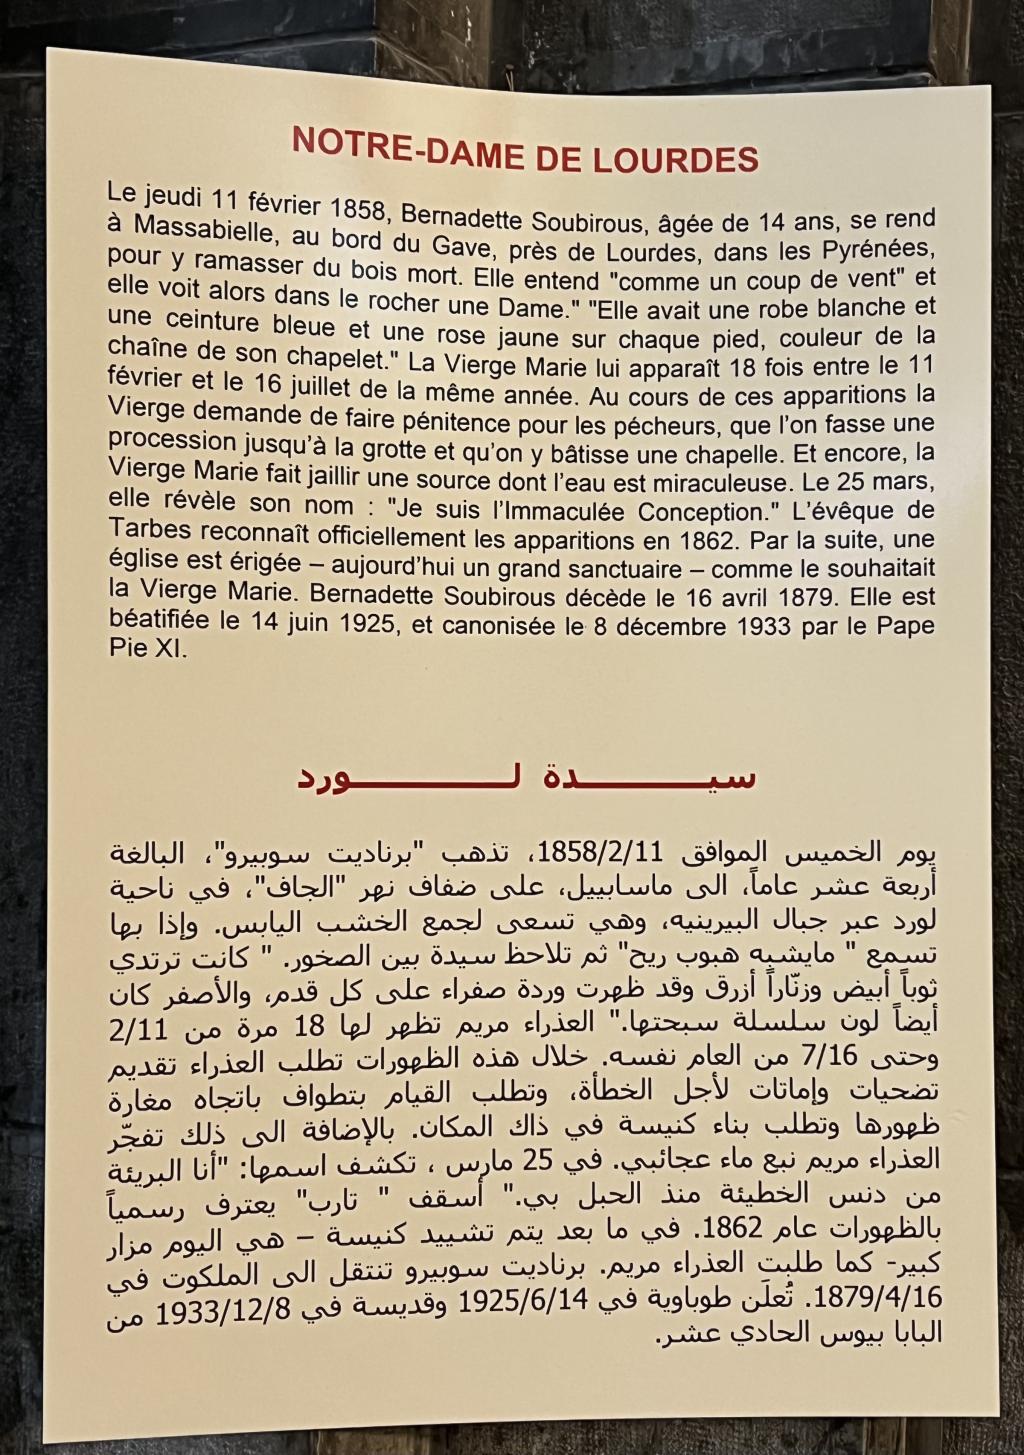 NOTRE-DAME DE LOURDES
Le jeudi 11 février 1858, Bernadette Soubirous, âgée de 14 ans, se rend
à Massabielle, au bord du Gave, près de Lourdes, dans les Pyrénées,
pour y ramasser du bois mort. Elle entend "comme un coup de vent" et
elle voit alors dans le rocher une Dame." "Elle avait une robe blanche et
une ceinture bleue et une rose jaune sur chaque pied, couleur de la
chaîne de son chapelet." La Vierge Marie lui apparaît 18 fois entre le 11
février et le 16 juillet de la même année. Au cours de ces apparitions la
Vierge demande de faire pénitence pour les pécheurs, que l'on fasse une
procession jusqu'à la grotte et qu'on y bâtisse une chapelle. Et encore, la
Vierge Marie fait jaillir une source dont l'eau est miraculeuse. Le 25 mars,
elle révèle son nom : "Je suis l'Immaculée Conception." L'évêque de
Tarbes reconnaît officiellement les apparitions en 1862. Par la suite, une
église est érigée – aujourd'hui un grand sanctuaire – comme le souhaitait
la Vierge Marie. Bernadette Soubirous décède le 16 avril 1879. Elle est
béatifiée le 14 juin 1925, et canonisée le 8 décembre 1933 par le Pape
Pie XI.
سيـــــدة لـــــورد
يوم الخميس الموافق 1858/2/11، تذهب "برناديت سوبيرو"، البالغة
أربعة عشر عاماً، الى ماسابييل، على ضفاف نهر "الجاف"، في ناحية
لورد عبر جبال البيرينيه، وهي تسعى لجمع الخشب اليابس. وإذا بها
تسمع " مايشبه هبوب ريح" ثم تلاحظ سيدة بين الصخور. " كانت ترتدي
ثوباً أبيض وزنّاراً أزرق وقد ظهرت وردة صفراء على كل قدم، والأصفر كان
أيضاً لون سلسلة سبحتها." العذراء مريم تظهر لها 18 مرة من 2/11
وحتى 7/16 من العام نفسه. خلال هذه الظهورات تطلب العذراء تقديم
تضحيات وإماتات لأجل الخطأة، وتطلب القيام بتطواف باتجاه مغارة
ظهورها وتطلب بناء كنيسة في ذاك المكان. بالإضافة الى ذلك تفجّر
العذراء مريم نبع ماء عجائبي. في 25 مارس ، تكشف اسمها: "أنا البريئة
من دنس الخطيئة منذ الحبل بي." أسقف " تارب" يعترف رسمياً
بالظهورات عام 1862. في ما بعد يتم تشييد كنيسة – هي اليوم مزار
كبير- كما طلبت العذراء مريم. برناديت سوبيرو تنتقل الى الملكوت في
1879/4/16. تُعلَن طوباوية في 1925/6/14 وقديسة في 1933/12/8 من
البابا بيوس الحادي عشر.